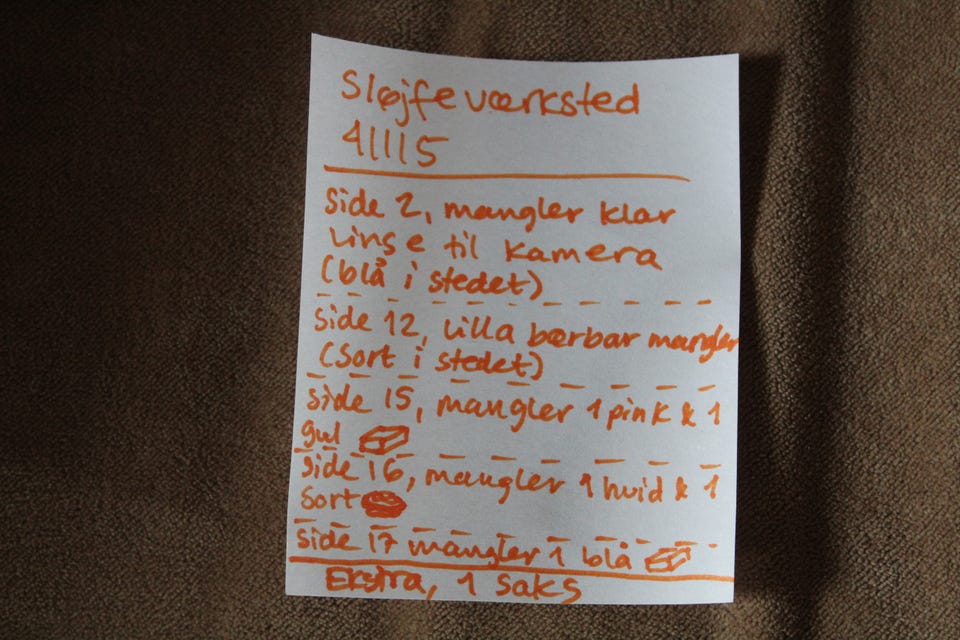 Sløjfeværksted
41115
Side 2, mangler klar
linse til kamera
(blå i stedet)
Side 12, lilla bærbar mangler
(Sort i stedet)
Side 15, mangler 1 pink & 1
gul
Side 16, mangler 1 hvid & 1
Sort
Side 17 mangler 1 blå
Ekstra, 1 Saks